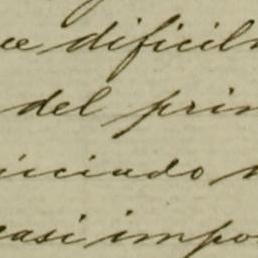 ce dificil
del prin
iciado
casi impo